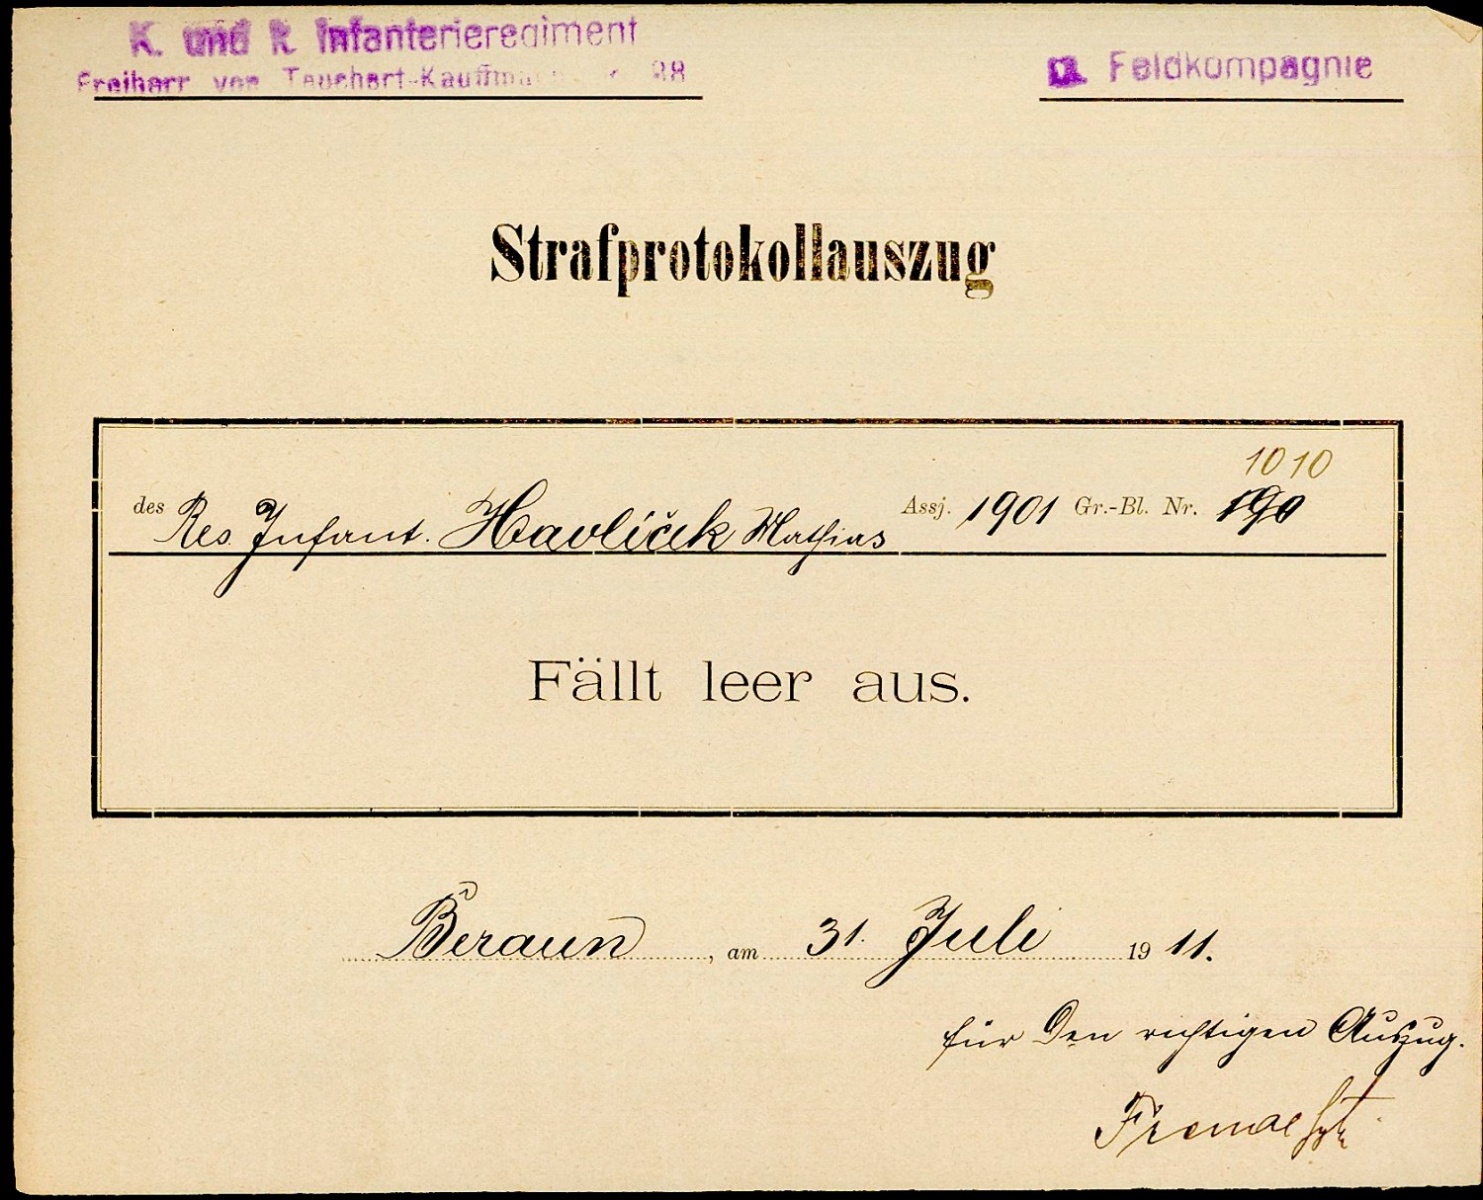 K. und k. Infanterieregiment
Freiherr von Kauffmann 28
Feldkompagnie
Strafprotokollauszug
1010
des Res. Infant. Havlíček Mathias Assj. 1901 Gr.-Bl. Nr. 190
Fällt leer aus.
Beraun, am 31. Juli 1911.
für den richtigen Auszug.